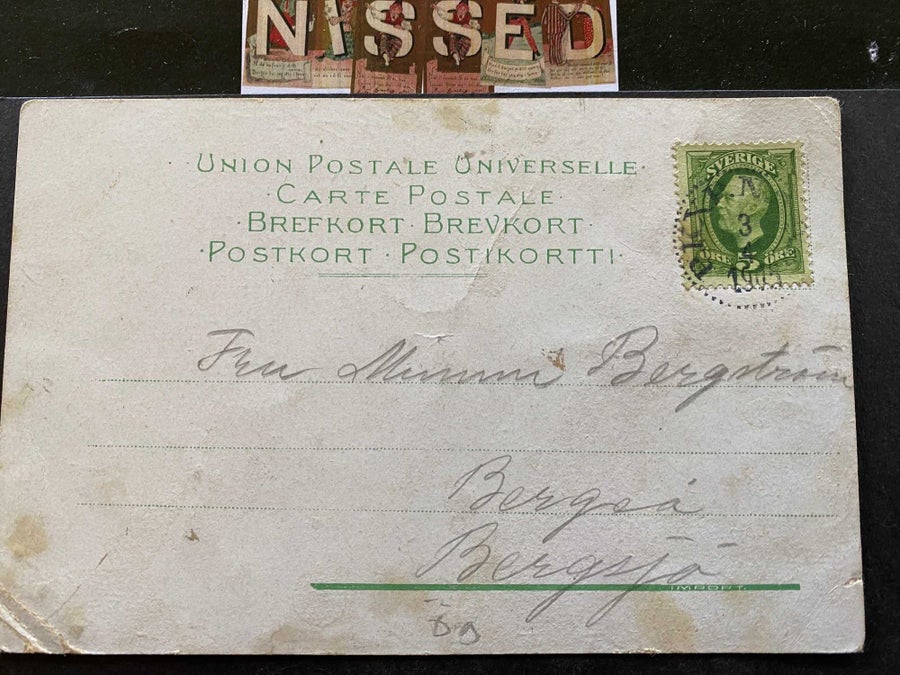 NISSED
UNION POSTALE UNIVERSELLE·
·CARTE POSTALE·
·BREFKORT·BREVKORT·
·POSTKORT·POSTIKORTTI·
SVERIGE
ÖRE 5 ÖRE
3
Fru Minna Bergström
Bergså
Bergsjö
IMPORT.